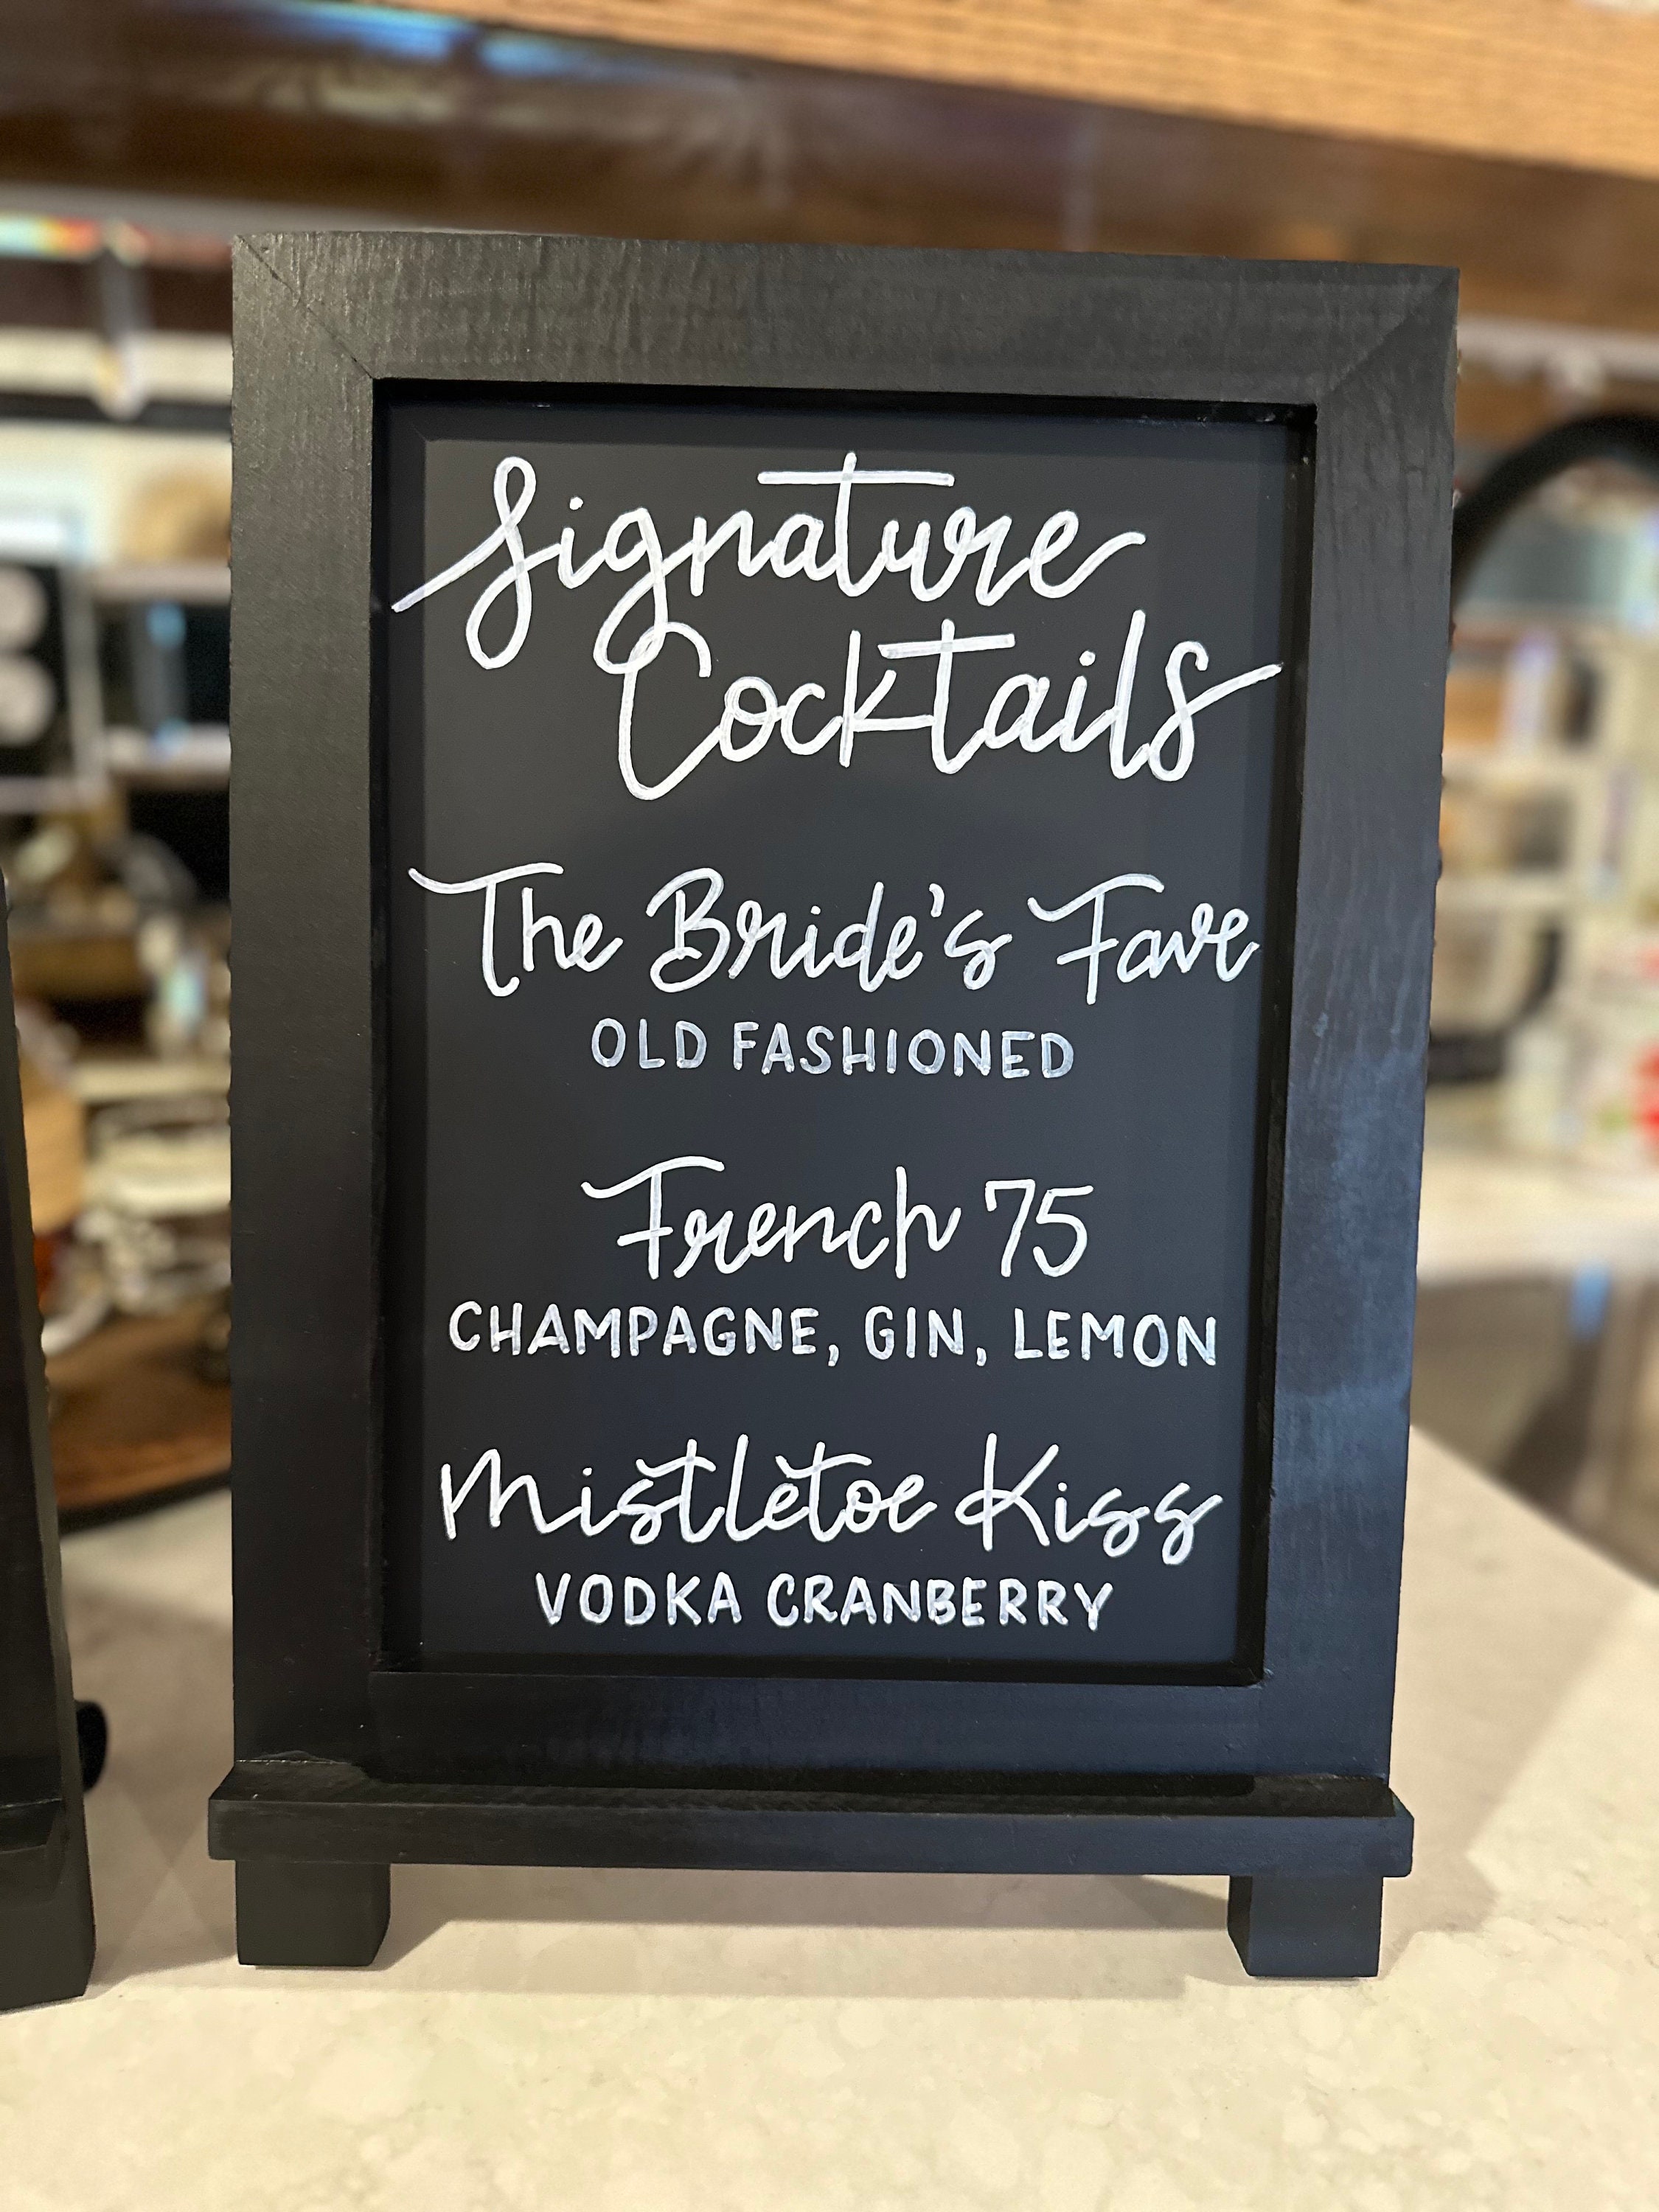 Signature
Cocktails
The Bride's Fave
OLD FASHIONED
French 75
CHAMPAGNE, GIN, LEMON
Mistletoe Kiss
VODKA CRANBERRY